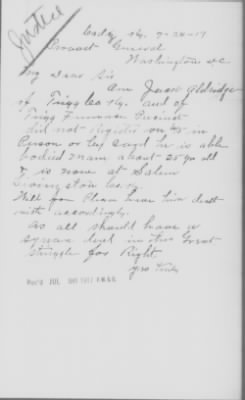 Justice
Cadiz Ky. 7-28-17
Provost General
Washington D.C.
My Dear Sir
One Jesse Aldridge
of Trigg Co Ky. and of
Trigg Furnace Precinct
did not register on 5th in
Person or by Card he is able
bodied man about 25 yrs old
& is now at Salem
Livingston Co. Ky.
Will you Please have him dealt
with accordingly.
As all should have a
square deal in this Great
struggle for Right
yrs truly
Rec'd JUL 1917 P.M.G.O.